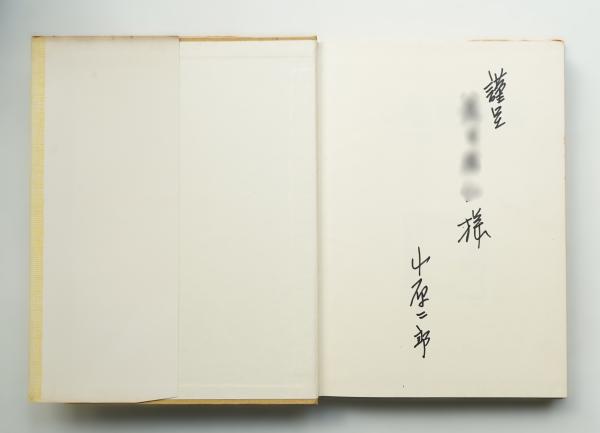 謹呈
様
小原二郎